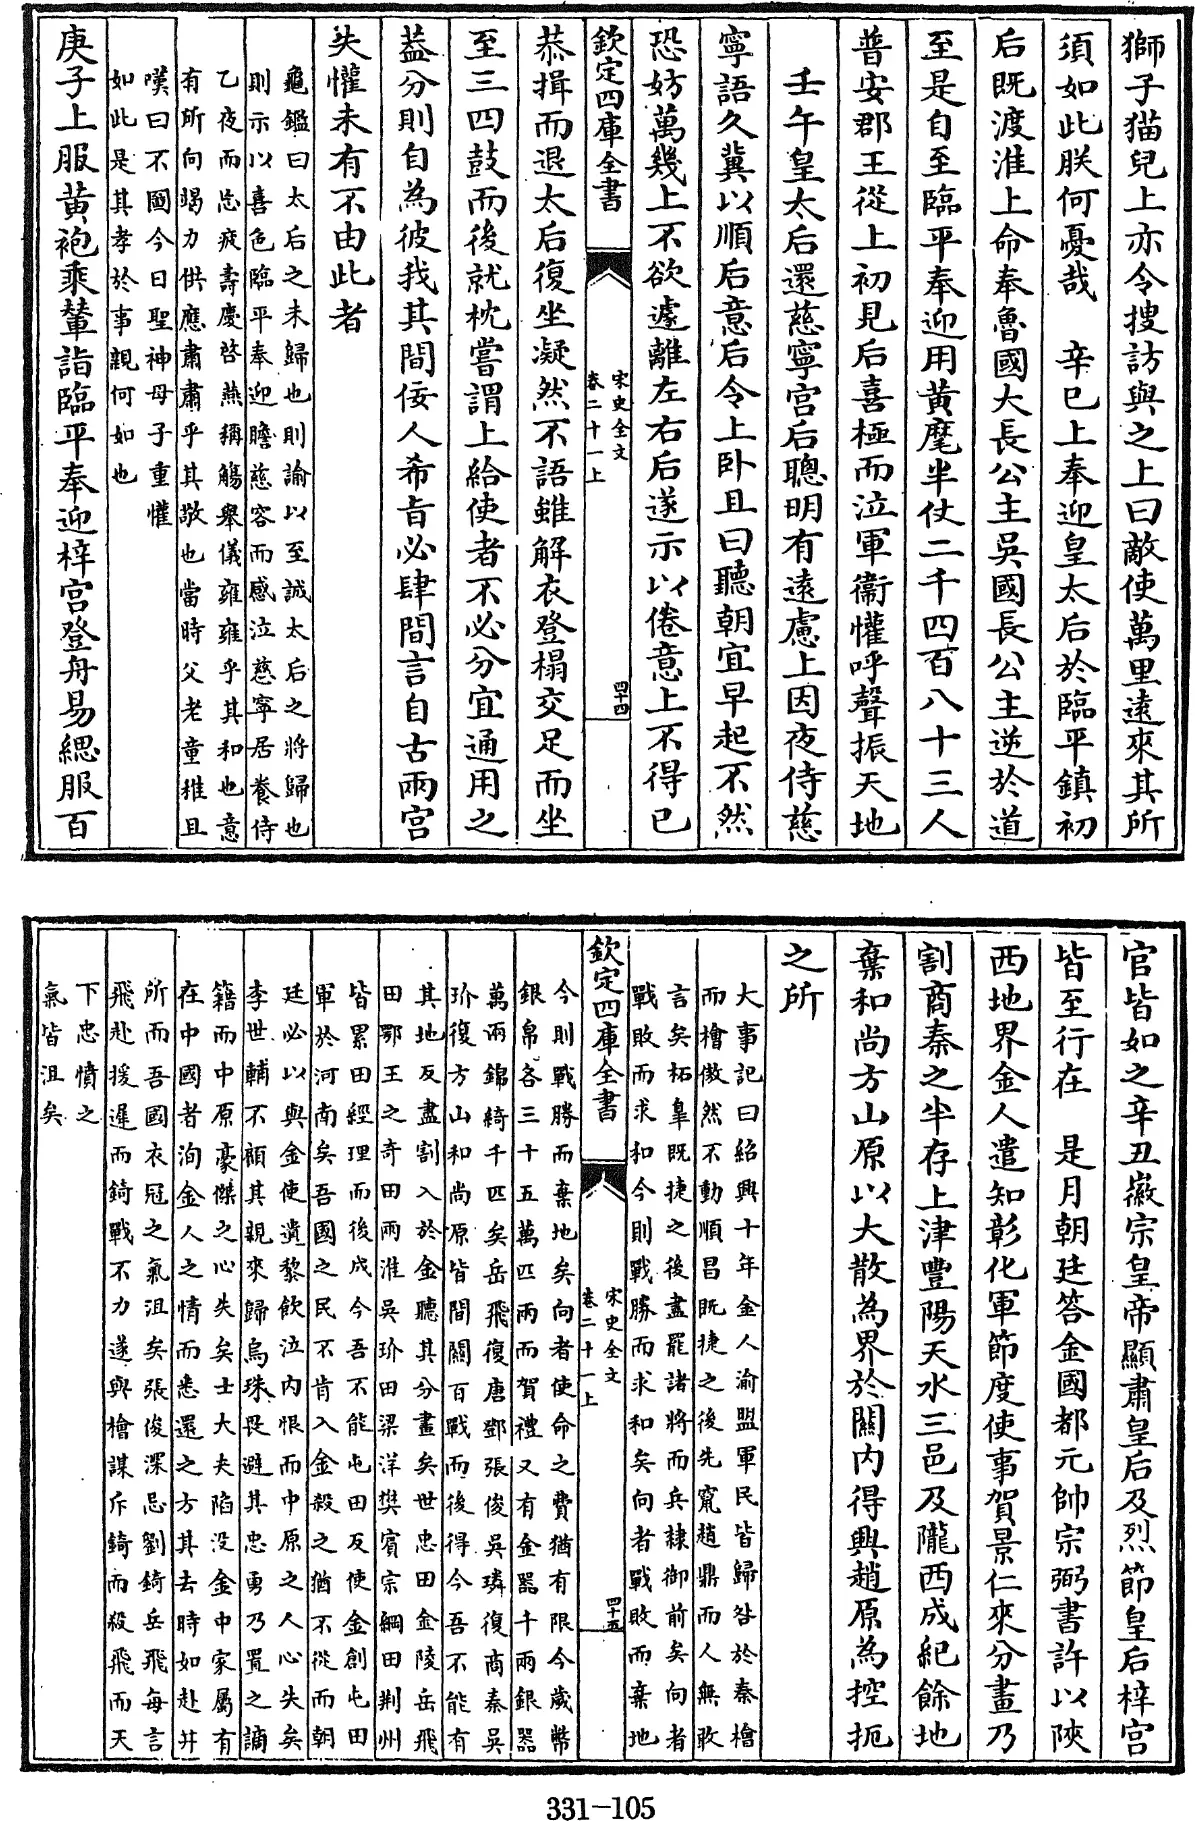 獅子猫兒上亦令搜訪與之上曰敵使萬里逺來其所
須如此朕何憂哉　辛巳上奉迎皇太后於臨平鎮初
后既渡淮上命奉魯國大長公主吳國長公主逆於道
至是自至臨平奉迎用黄麾半仗二千四百八十三人
普安郡王從上初見后喜極而泣軍衞懽呼聲振天地
壬午皇太后還慈寧宫后聰明有逺慮上因夜侍慈
寧語久冀以順后意后令上卧且曰聽朝宜早起不然
恐妨萬幾上不欲遽離左右后遂示以倦意上不得已
欽定四庫全書
宋史全文
卷二十一上
四十四
恭揖而退太后復坐凝然不語雖解衣登榻交足而坐
至三四鼓而後就枕嘗謂上給使者不必分宜通用之
葢分則自為彼我其間佞人希㫖必肆間言自古兩宫
失懽未有不由此者
龜鑑曰太后之未歸也則諭以至誠太后之將歸也
則示以喜色臨平奉迎瞻慈容而感泣慈寧居養侍
乙夜而忘疲壽慶啓燕稱觴舉儀雍雍乎其和也意
有所向竭力供應肅肅乎其敬也當時父老童稚且
嘆曰不圖今日聖神母子重懽
如此是其孝於事親何如也
庚子上服黄袍乘輦詣臨平奉迎梓宫登舟易緦服百
官皆如之辛丑徽宗皇帝顯肅皇后及烈節皇后梓宫
皆至行在　是月朝廷答金國都元帥宗弼書許以陜
西地界金人遣知彰化軍節度使事賀景仁來分畫乃
割商秦之半存上津豐陽天水三邑及隴西成紀餘地
棄和尚方山原以大散為界於關内得興趙原為控扼
之所
大事記曰紹興十年金人渝盟軍民皆歸咎於秦檜
而檜傲然不動順昌既捷之後先竄趙鼎而人無敢
言矣柘臯既捷之後盡罷諸將而兵隷御前矣向者
戰敗而求和今則戰勝而求和矣向者戰敗而棄地
欽定四庫全書
宋史全文
卷二十一上
四十五
今則戰勝而棄地矣向者使命之費猶有限今歲幣
銀帛各三十五萬匹兩而賀禮又有金器千兩銀器
萬兩錦綺千匹矣岳飛復唐鄧張俊吳璘復商秦吳
玠復方山和尚原皆間關百戰而後得今吾不能有
其地反盡割入於金聽其分畫矣世忠田金陵岳飛
田鄂王之奇田兩淮吳玠田梁洋樊賓宗綱田荆州
皆累田經理而後成今吾不能屯田反使金創屯田
軍於河南矣吾國之民不肯入金殺之猶不從而朝
廷必以與金使遺黎飲泣内恨而中原之人心失矣
李世輔不顧其親來歸烏珠畏避其忠勇乃置之謫
籍而中原豪傑之心失矣士大夫陷没金中家屬有
在中國者洵金人之情而悉還之方其去時如赴井
所而吾國衣冠之氣沮矣張俊深忌劉錡岳飛每言
飛赴援遲而錡戰不力遂與檜謀斥錡而殺飛而天
下忠憤之
氣皆沮矣
331-105